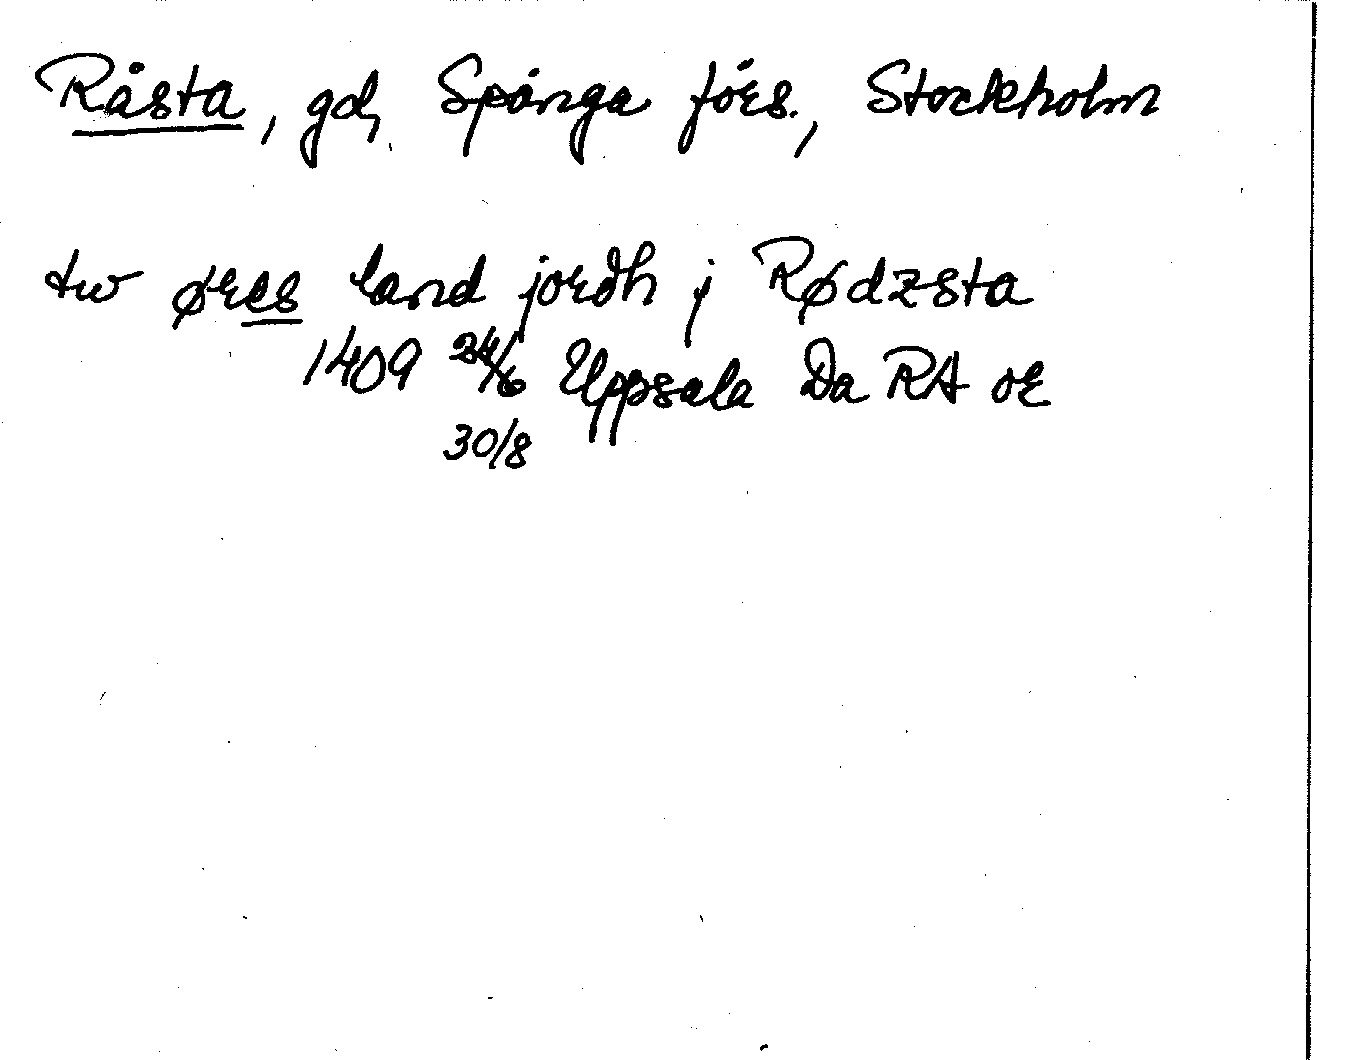 Råsta, gd, Spånga förs., Stockholm
tw øres land jordh j Rødzsta
1409 24/6 Uppsala Da RA or
30/8